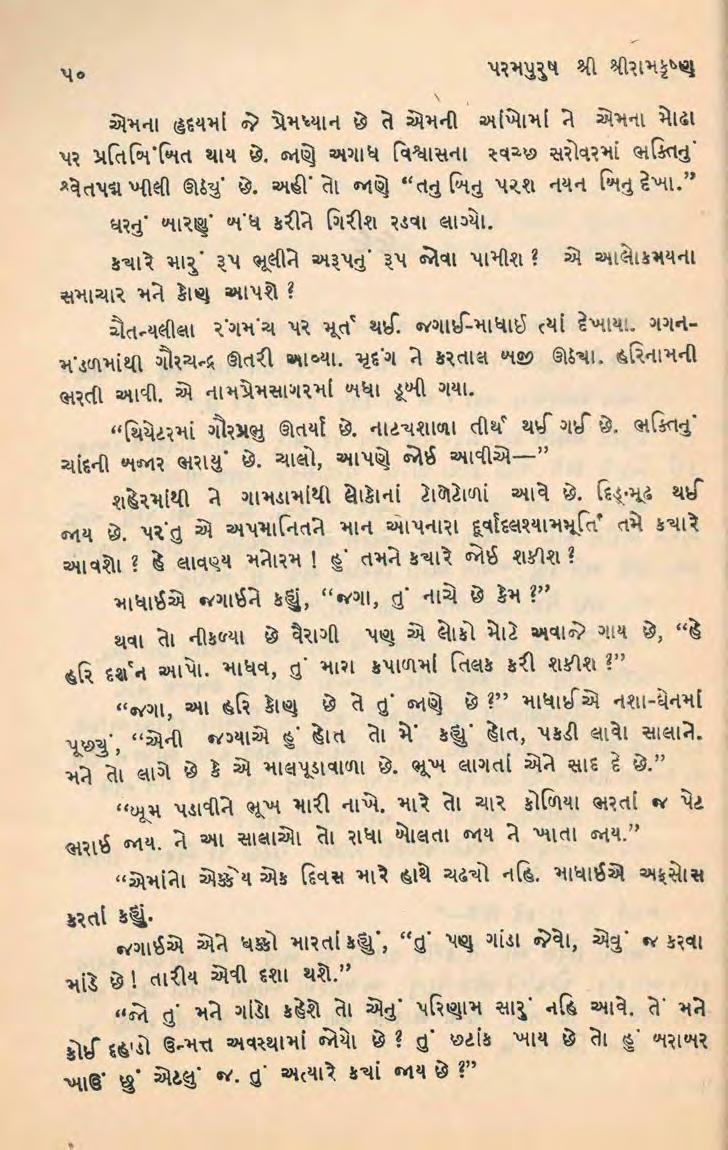 ૫૦
પરમપુરુષ શ્રી શ્રીરામકૃષ્ણ
એમના હૃદયમાં જે પ્રેમધ્યાન છે તે એમની આંખોમાં ને એમના મોઢા
પર પ્રતિબિંબિત થાય છે. જાણે અગાધ વિશ્વાસના સ્વચ્છ સરોવરમાં ભક્તિનું
શ્વેતપદ્મ ખીલી ઊઠયું છે. અહીં તો જાણે “તનુ બિનુ પરશ નયન બિનુ દેખા.”
ઘરનું બારણું બંધ કરીને ગિરીશ રડવા લાગ્યો.
કયારે મારું રૂપ ભૂલીને અરૂપનું રૂપ જોવા પામીશ ? એ આલોકમયના
સમાચાર મને કોણ આપશે ?
ચૈતન્યલીલા રંગમંચ પર મૂર્ત થઈ. જગાઈ-માધાઈ ત્યાં દેખાયા. ગગન-
મંડળમાંથી ગૌરચન્દ્ર ઊતરી આવ્યા. મૃદંગ ને કરતાલ બજી ઊઠયા. હરિનામની
ભરતી આવી. એ નામપ્રેમસાગરમાં બધા ડૂબી ગયા.
“થિયેટરમાં ગૌરપ્રભુ ઊતર્યા છે. નાટયશાળા તીર્થ થઈ ગઈ છે. ભક્તિનું
ચાંદની બજાર ભરાયું છે. ચાલો, આપણે જોઈ આવીએ—”
શહેરમાંથી ને ગામડામાંથી લોકોનાં ટોળેટોળાં આવે છે. દિઙ્મૂઢ થઈ
જાય છે. પરંતુ એ અપમાનિતને માન આપનારા દૂર્વાદલશ્યામમૂર્તિ તમે કયારે
આવશો ? હે લાવણ્ય મનોરમ ! હું તમને કયારે જોઈ શકીશ ?
માધાઈએ જગાઈને કહ્યું, “જગા, તું નાચે છે કેમ ?”
થવા તો નીકળ્યા છે વૈરાગી પણ એ લોકો મોટે અવાજે ગાય છે, “હે
હરિ દર્શન આપો. માધવ, તું મારા કપાળમાં તિલક કરી શકીશ ?”
“જગા, આ હરિ કોણ છે તે તું જાણે છે ?” માધાઈએ નશા-ઘેનમાં
પૂછયું, “એની જગ્યાએ હું હોત તો મેં કહ્યું હોત, પકડી લાવો સાલાને.
મને તો લાગે છે કે એ માલપૂડાવાળા છે. ભૂખ લાગતાં એને સાદ દે છે.”
“બૂમ પડાવીને ભૂખ મારી નાખે. મારે તો ચાર કોળિયા ભરતાં જ પેટ
ભરાઈ જાય. ને આ સાલાઓ તો રાધા બોલતા જાય ને ખાતા જાય.”
“એમાંનો એક્કેય એક દિવસ મારે હાથે ચઢયો નહિ. માધાઈએ અફસોસ
કરતાં કહ્યું.
જગાઈએ એને ધક્કો મારતાં કહ્યું, “તું પણ ગાંડા જેવો, એવું જ કરવા
માંડે છે ! તારીય એવી દશા થશે.”
“જો તું મને ગાંડો કહેશે તો એનું પરિણામ સારું નહિ આવે. તેં મને
કોઈ દહાડો ઉન્મત્ત અવસ્થામાં જોયો છે ? તું છટાંક ખાય છે તો હું બરાબર
ખાઉં છું એટલું જ. તું અત્યારે કયાં જાય છે ?”